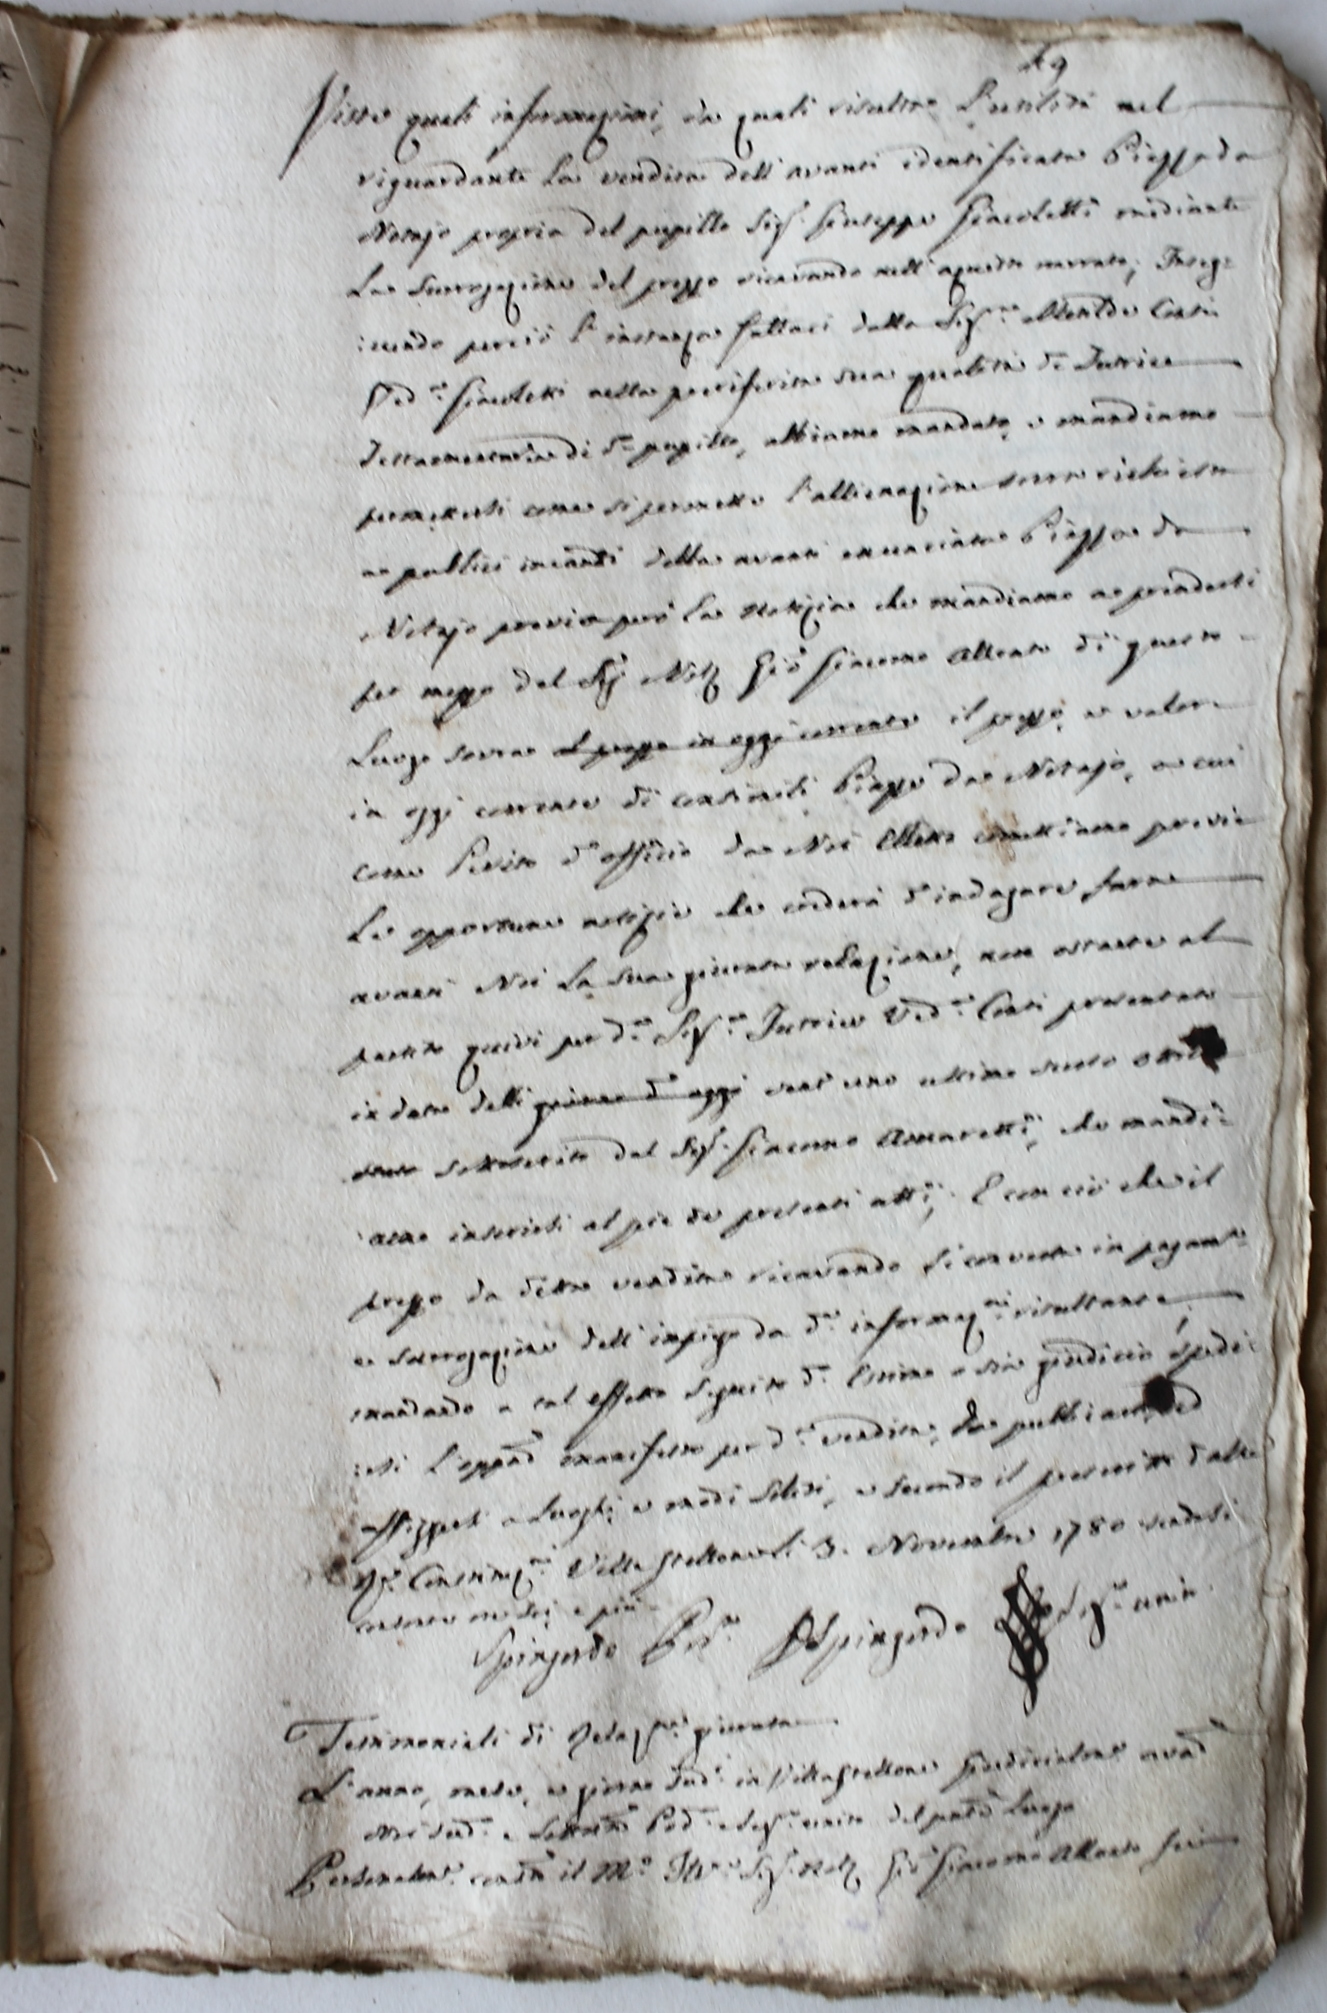 49
Viste queste informazioni, da quali risulta l'utilità nel
riguardante la vendita dell'avanti identificata Piazza da
Notajo propria del pupillo Sig.r Giuseppe Giacoletti mediante
La Surrogazione del prezzo ricavando nell'aquisto narrato; Inseg=
:uendo perciò l'instanza fattaci dalla Sig.ra Conti
Ved.a Giacoletti nella preriferita sua qualità di Tutrice
Testamentaria di d.o pupillo, abbiamo mandato, e mandiamo
permettersi come si permette l'allienazione sovra richiesta
a publici incanti della avanti enunciata Piazza da
Notajo previa però la notizia che mandiamo a prendersi
per mezzo del Sig.r Not.o Gio Giacomo Allonato di questo
Luogo sovra il prezzo in oggi corrente il prezzo, e valor
in oggi corrente di consimili Piazze da Notajo, a cui
come Perito d'officio da Noi Eletto comettiamo previe
Le opportune notizie che crederà d'indagare farne
avanti Noi la sua giurata relazione, non ostante al
partito quivi per d.a Sig.ra Tutrice Ved.a Conti presentato
in data delli giorno d'oggi vent'uno ultimo scorso
sottoscritto dal Sig.r Giacomo Amaretti, che mandi=
:amo inserirsi al piè de presenti atti; E con ciò che il
prezzo da detta vendita ricavando si converta in pagam.to
e surrogazione dell'impiego da d.e informaz.ni risultante,
mandando a tal effetto seguito d.o Estimo o sia giudicio spedi=
:rsi l'oppor.o manifesto per d.a vendita, da publicarsi, ed
affiggersi a luoghi, e modi soliti, e secondo il prescritto dalle
R.e Constituz.ni Villa Stellone li 3. Novembre 1780
Spingardo Pod.a Spingardo Seg.ro unito
Testimoniali di Relaz.ne giurata
L'anno, mese, e giorno sud.i in Villastellone giudicialm.te avanti
Noi sud.o e sottos.to Pod.a e Seg.ro unito del pred.o Luogo
Personalm.te il M.o Ill.e Sig.r Not.o Gio Giacomo